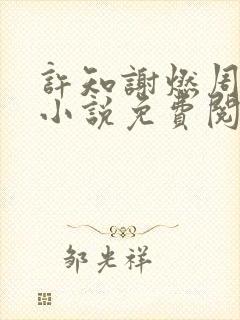 許知謝燃周
小說免費閱
鄒光祥